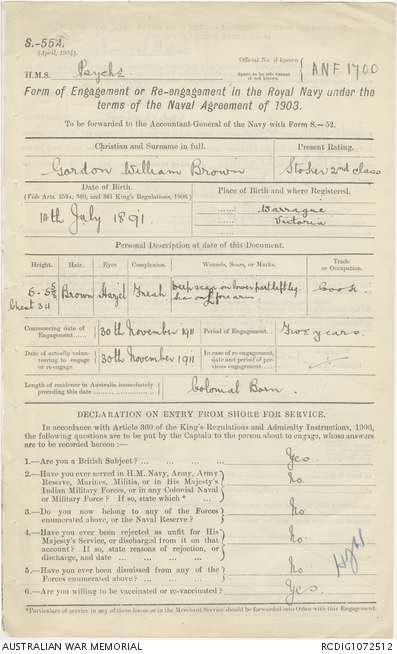 S.—552.
(April, 1904).
H.M.S. Psyche
Official No. if known
Space to be left vacant if not known.
ANF 1700
Form of Engagement or Re-engagement in the Royal Navy under the
terms of the Naval Agreement of 1903.
To be forwarded to the Accountant-General of the Navy with Form S.—52.
Christian and Surname in full.
Present Rating.
Gordon William Brown
Stoker 2nd class
Date of Birth.
(Vide Arts. 359a, 360, and 361 King's Regulations, 1906.)
Place of Birth and where Registered.
10th July 1891.
Warragul
Victoria
Personal Description at date of this Document.
Height.
Hair.
Eyes.
Complexion.
Wounds, Scars, or Marks.
Trade
or Occupation.
5-5
Chest 34
Brown
Hazel
Fresh
Deep scar on lower part left leg
forearm.
Cook
Commencing date of
Engagement......
30th November 1911
Period of Engagement.
years.
Date of actually volun-
teering to engage
or re-engage.
30th November 1911
In case of re-engagement,
date and period of pre-
vious engagement......
Length of residence in Australia immediately
preceding this date
Colonial Born.
DECLARATION ON ENTRY FROM SHORE FOR SERVICE.
In accordance with Article 360 of the King's Regulations and Admiralty Instructions, 1906,
the following questions are to be put by the Captain to the person about to engage, whose answers
are to be recorded herein :—
1.—Are you a British Subject? ... ... ... ...
Yes
2.—Have you ever served in H.M. Navy, Army, Army
Reserve, Marines, Militia, or in His Majesty's
Indian Military Forces, or in any Colonial Naval
or Military Force? If so, state which * ... ...
No.
3.—Do you now belong to any of the Forces
enumerated above, or the Naval Reserve?
No
4.—Have you ever been rejected as unfit for His
Majesty's Service, or discharged from it on that
account? If so, state reasons of rejection, or
discharge, and date ... ... ... ...
No
5.—Have you ever been dismissed from any of the
Forces enumerated above? ... ... ...
No
6.—Are you willing to be vaccinated or re-vaccinated?
Yes.
*Particulars of service in any of these forces or in the Merchant Service should be forwarded into Office with this Engagement.
AUSTRALIAN WAR MEMORIAL
RCDIG1072512